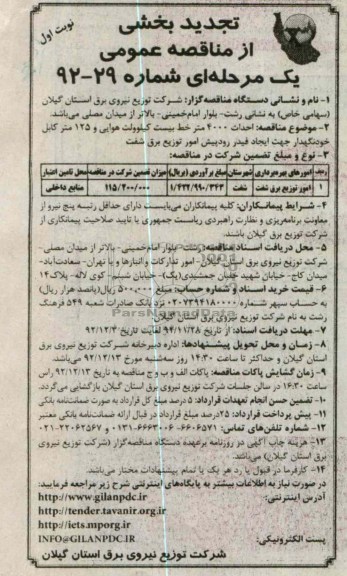 نوبت اول
تجدید بخشی
از مناقصه عمومی
یک مرحله‌ای شماره ۲۹-۹۲
۱- نام و نشانی دستگاه مناقصه‌گزار: شرکت توزیع نیروی برق استان گیلان
(سهامی خاص) به نشانی رشت- بلوار امام‌خمینی- بالاتر از میدان مصلی می‌باشد.
۲- موضوع مناقصه: احداث ۲۰۰۰ متر خط بیست کیلوولت هوایی و ۱۲۵ متر کابل
خودنگهدار جهت ایجاد فیدر رودپیش امور توزیع برق شفت
۳- نوع و مبلغ تضمین شرکت در مناقصه:
ردیف امورهای بهره‌برداری شهرستان مبلغ برآوردی (ریال) میزان تضمین شرکت در مناقصه محل تامین اعتبار
۱ امور توزیع برق شفت شفت ۱/۶۳۲/۹۹۰/۳۴۳ ۱۱۵/۲۰۰/۰۰۰ منابع داخلی
۴- شرایط پیمانکاران: کلیه پیمانکاران می‌بایست دارای حداقل رتبه پنج نیرو از
معاونت برنامه‌ریزی و نظارت راهبردی ریاست جمهوری یا تایید صلاحیت پیمانکاری از
شرکت توزیع برق گیلان باشند.
۵- محل دریافت اسناد مناقصه: رشت- بلوار امام‌خمینی- بالاتر از میدان مصلی-
شرکت توزیع نیروی برق استان گیلان- امور تدارکات و انبارها و یا تهران- سعادت‌آباد-
میدان کاج- خیابان شهید جلیل جمشیدی(یک)- خیابان شبنم- کوی لاله- پلاک۱۴
۶- قیمت خرید اسناد و شماره حساب: مبلغ ۵۰۰٫۰۰۰ ریال(پانصد هزار ریال)
به حساب سپهر شماره ۰۲۰۷۳۹۴۱۸۰۰۰۰ نزد بانک صادرات شعبه ۵۴۹ فرهنگ
رشت به نام شرکت توزیع نیروی برق استان گیلان
۷- مهلت دریافت اسناد: از تاریخ ۹۲/۱۱/۲۸ لغایت تاریخ ۹۲/۱۲/۳
۸- زمان و محل تحویل پیشنهادها: اداره دبیرخانه شرکت توزیع نیروی برق
استان گیلان و حداکثر تا ساعت ۱۴:۳۰ روز سه‌شنبه مورخ ۹۲/۱۲/۱۳ می‌باشد.
۹- زمان گشایش پاکات مناقصه: پاکات الف و ب و ج مناقصه به تاریخ ۹۲/۱۲/۱۳ راس
ساعت ۱۶:۳۰ در سالن جلسات شرکت توزیع نیروی برق استان گیلان بازگشایی می‌گردد.
۱۰- تضمین حسن انجام تعهدات قرارداد: ۵ درصد مبلغ کل قرارداد به صورت ضمانت‌نامه بانکی
۱۱- پیش پرداخت قرارداد: ۲۵درصد مبلغ قرارداد در قبال ارائه ضمانت‌نامه بانکی معتبر
۱۲- شماره تلفن‌های تماس: ۶۶۰۶۵۷۱- ۶۶۶۳۰۰۶-۰۱۳۱ و ۲۲۰۶۲۵۶۷-۰۲۱
۱۳- هزینه چاپ آگهی در روزنامه برعهده دستگاه مناقصه‌گزار (شرکت توزیع نیروی
برق استان گیلان) می‌باشد.
۱۴- کارفرما در قبول یا رد هر یک یا تمام پیشنهادات مختار می‌باشد.
در صورت نیاز به اطلاعات بیشتر به پایگاه‌های اینترنتی شرح زیر مراجعه فرمایید:
آدرس اینترنتی: http://www.gilanpdc.ir
http://tender.tavanir.org.ir
http://iets.mporg.ir
پست الکترونیکی: INFO@GILANPDC.IR
شرکت توزیع نیروی برق استان گیلان
ParsNamadData